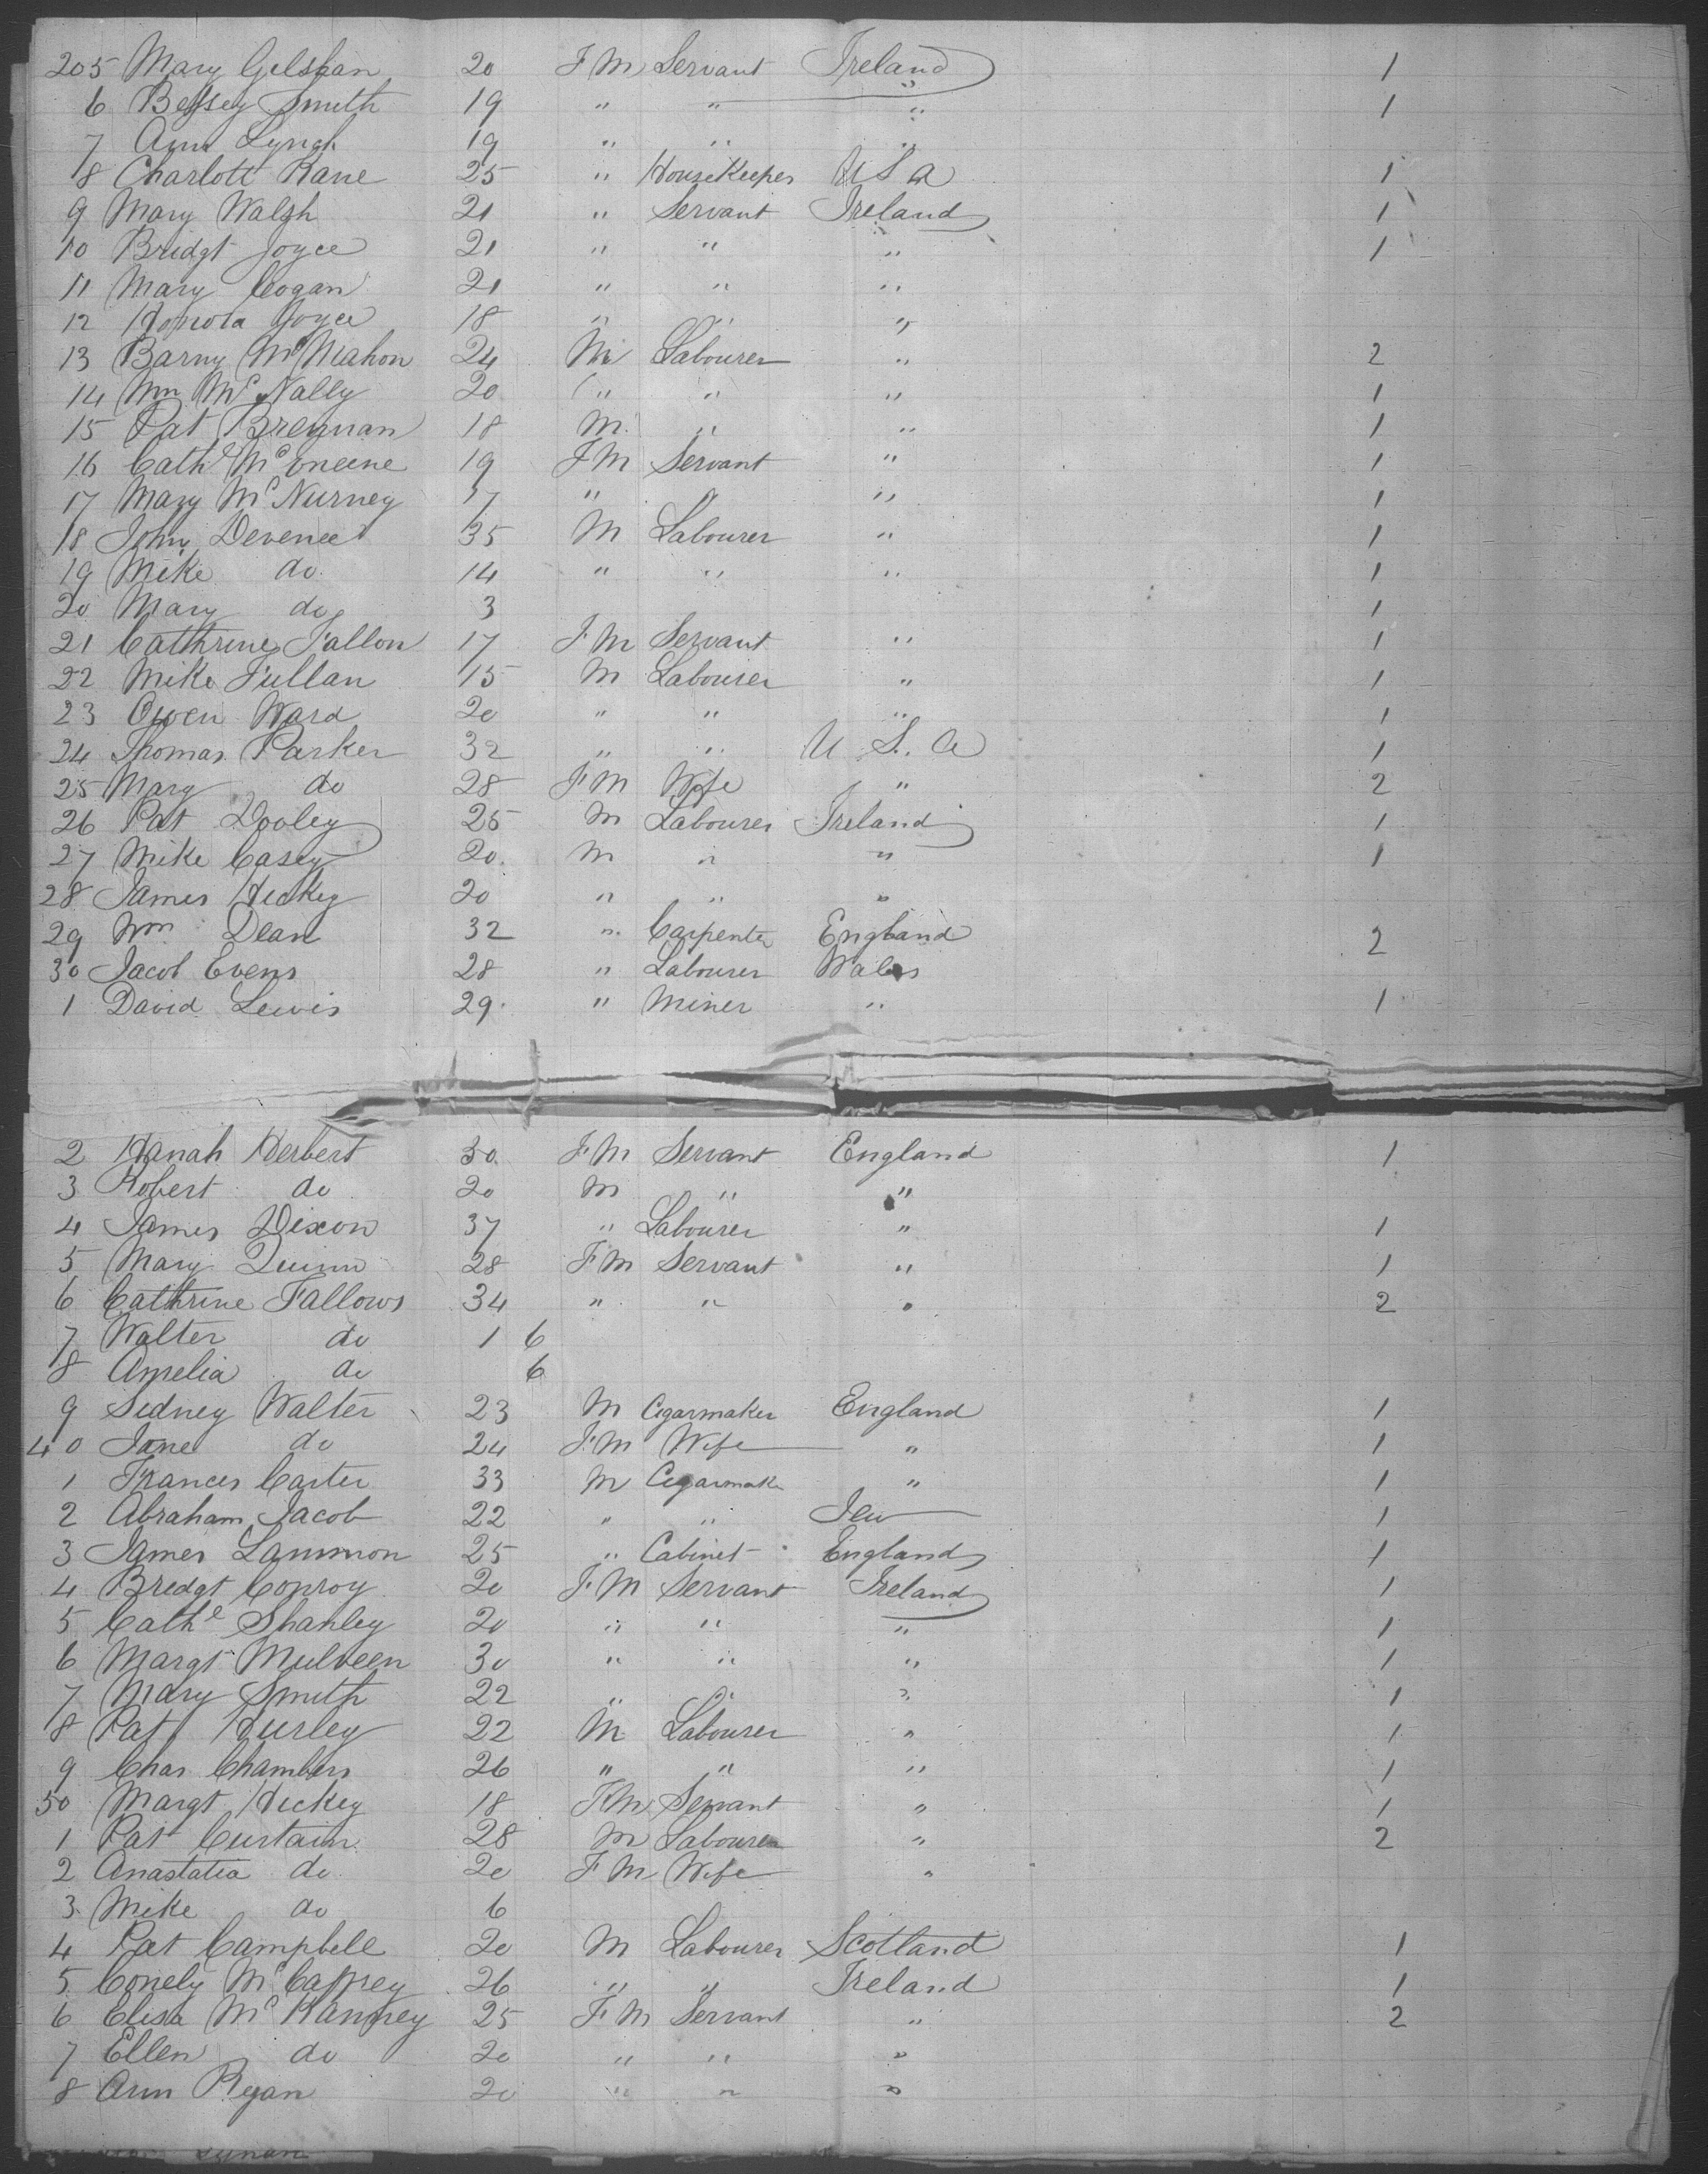 205 Mary Gilshan 20 F M Servant Ireland 1
6 Bessey Smith 19 " " " 1
7 Ann Lynch 19 " " "
8 Charlott Kane 25 " HouseKeeper U S A 1
9 Mary Walsh 21 " Servant Ireland 1
10 Bridgt Joyce 21 " " " 1
11 Mary Cogan 21 " " "
12 Honora Joyce 18 " " "
13 Barny McMahon 24 M Labourer " 2
14 Wm McNally 20 " " " 1
15 Pat Brennan 18 M " " 1
16 Cathe 19 F M Servant " 1
17 Mary McNurney 17 " " " 1
18 John Devenee 35 M Labourer " 1
19 Mike do 14 " " " 1
20 Mary do 3 1
21 Cathrine Fallon 17 F M Servant " 1
22 Mike Fullan 15 M Labourer " 1
23 Owen Ward 20 " " " 1
24 Thomas Parker 32 " " U. S. A 1
25 Mary do 28 F M Wife " 2
26 Pat Dooley 25 M Labourer Ireland 1
27 Mike Casey 20 M " " 1
28 James Hickey 20 " " "
29 Wm Dean 32 " Carpenter England 2
30 Jacob Evens 28 " Labourer Wales
1 David Lewis 29 " Miner " 1
2 Hanah Herbert 30 F M Servant England 1
3 Robert do 20 M " "
4 James Dixon 37 " Labourer " 1
5 Mary Quinn 28 F M Servant " 1
6 Cathrine Fallows 34 " " " 2
7 Walter do 1 6
8 Amelia do 6
9 Sidney Walter 23 M Cigarmaker England 1
40 Jane do 24 F M Wife " 1
1 Frances Carter 33 M Cigarmak " 1
2 Abraham Jacob 22 " " Jew 1
3 James Lammon 25 " Cabinet England 1
4 Bredgt Conroy 20 F M Servant Ireland 1
5 Cathe Shanley 20 " " " 1
6 Margt Mulveen 30 " " " 1
7 Mary Smith 22 " " " 1
8 Pat Hurley 22 M Labourer " 1
9 Chas Chambers 26 " " " 1
50 Margt Hickey 18 F M Servant " 1
1 Pat Curtain 28 M Labourer " 2
2 Anastatia do 20 F M Wife "
3 Mike do 6
4 Pat Campbell 20 M Labourer Scotland 1
5 Conely McCaffrey 26 " " Ireland 1
6 Elisa McKanney 25 F M Servant " 2
7 Ellen do 20 " " "
8 Ann Ryan 20 " " "